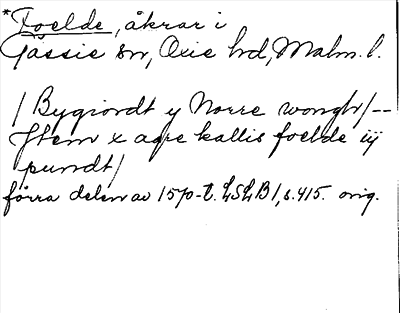 *Foelde, åkrar i
Gässie sn, Oxie hd, Malm. l.
/Bygiordt y Norre wongh/--
Jtem x agre kallis foelde iij
pundt/
förra delen av 1570-t. LSLB1, s. 415. orig.